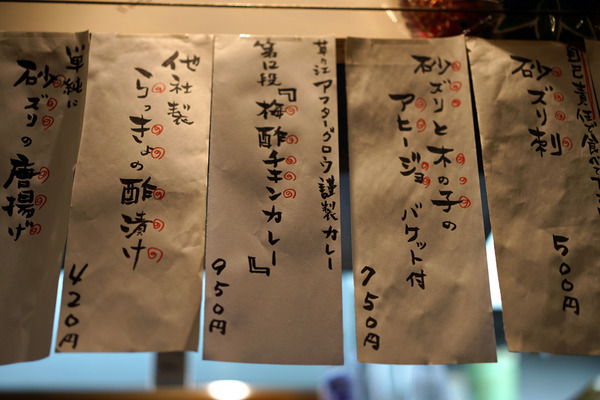 自己責任で食べて
砂ズリ刺
500円
砂ズリと木の子の
アヒージョ バケット付
750円
アフターグロウ謹製カレー
第12段『梅酢チキンカレー』
950円
他社製
らっきょの酢漬け
420円
単純に
砂ズリの唐揚げ